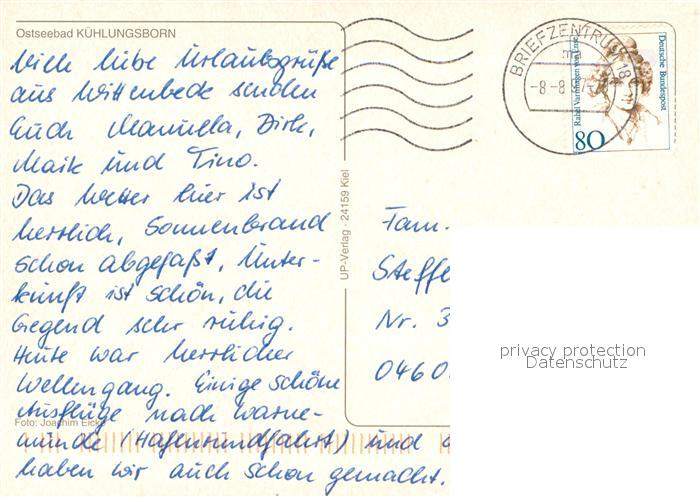 Ostseebad KÜHLUNGSBORN
Viele liebe Urlaubsgrüße
aus Wittenbeck senden
Euch Manuela, Dirk,
Maik und Tino.
Das Wetter hier ist
herrlich, Sonnenbrand
schon abgefaßt, Unter-
kunft ist schön, die
Gegend sehr ruhig.
Heute war herrlicher
Wellengang. Einige schöne
Ausflüge nach Warne-
münde (Hafenrundfahrt) und
haben wir auch schon gemacht.
Foto: Joachim Eicke
UP-Verlag · 24159 Kiel
BRIEFZENTRUM 18
-8.-8.97
Deutsche Bundespost
Rahel Varnhagen von Ense
80
Fam.
Steffe
Nr. 3
0460
privacy protection
Datenschutz